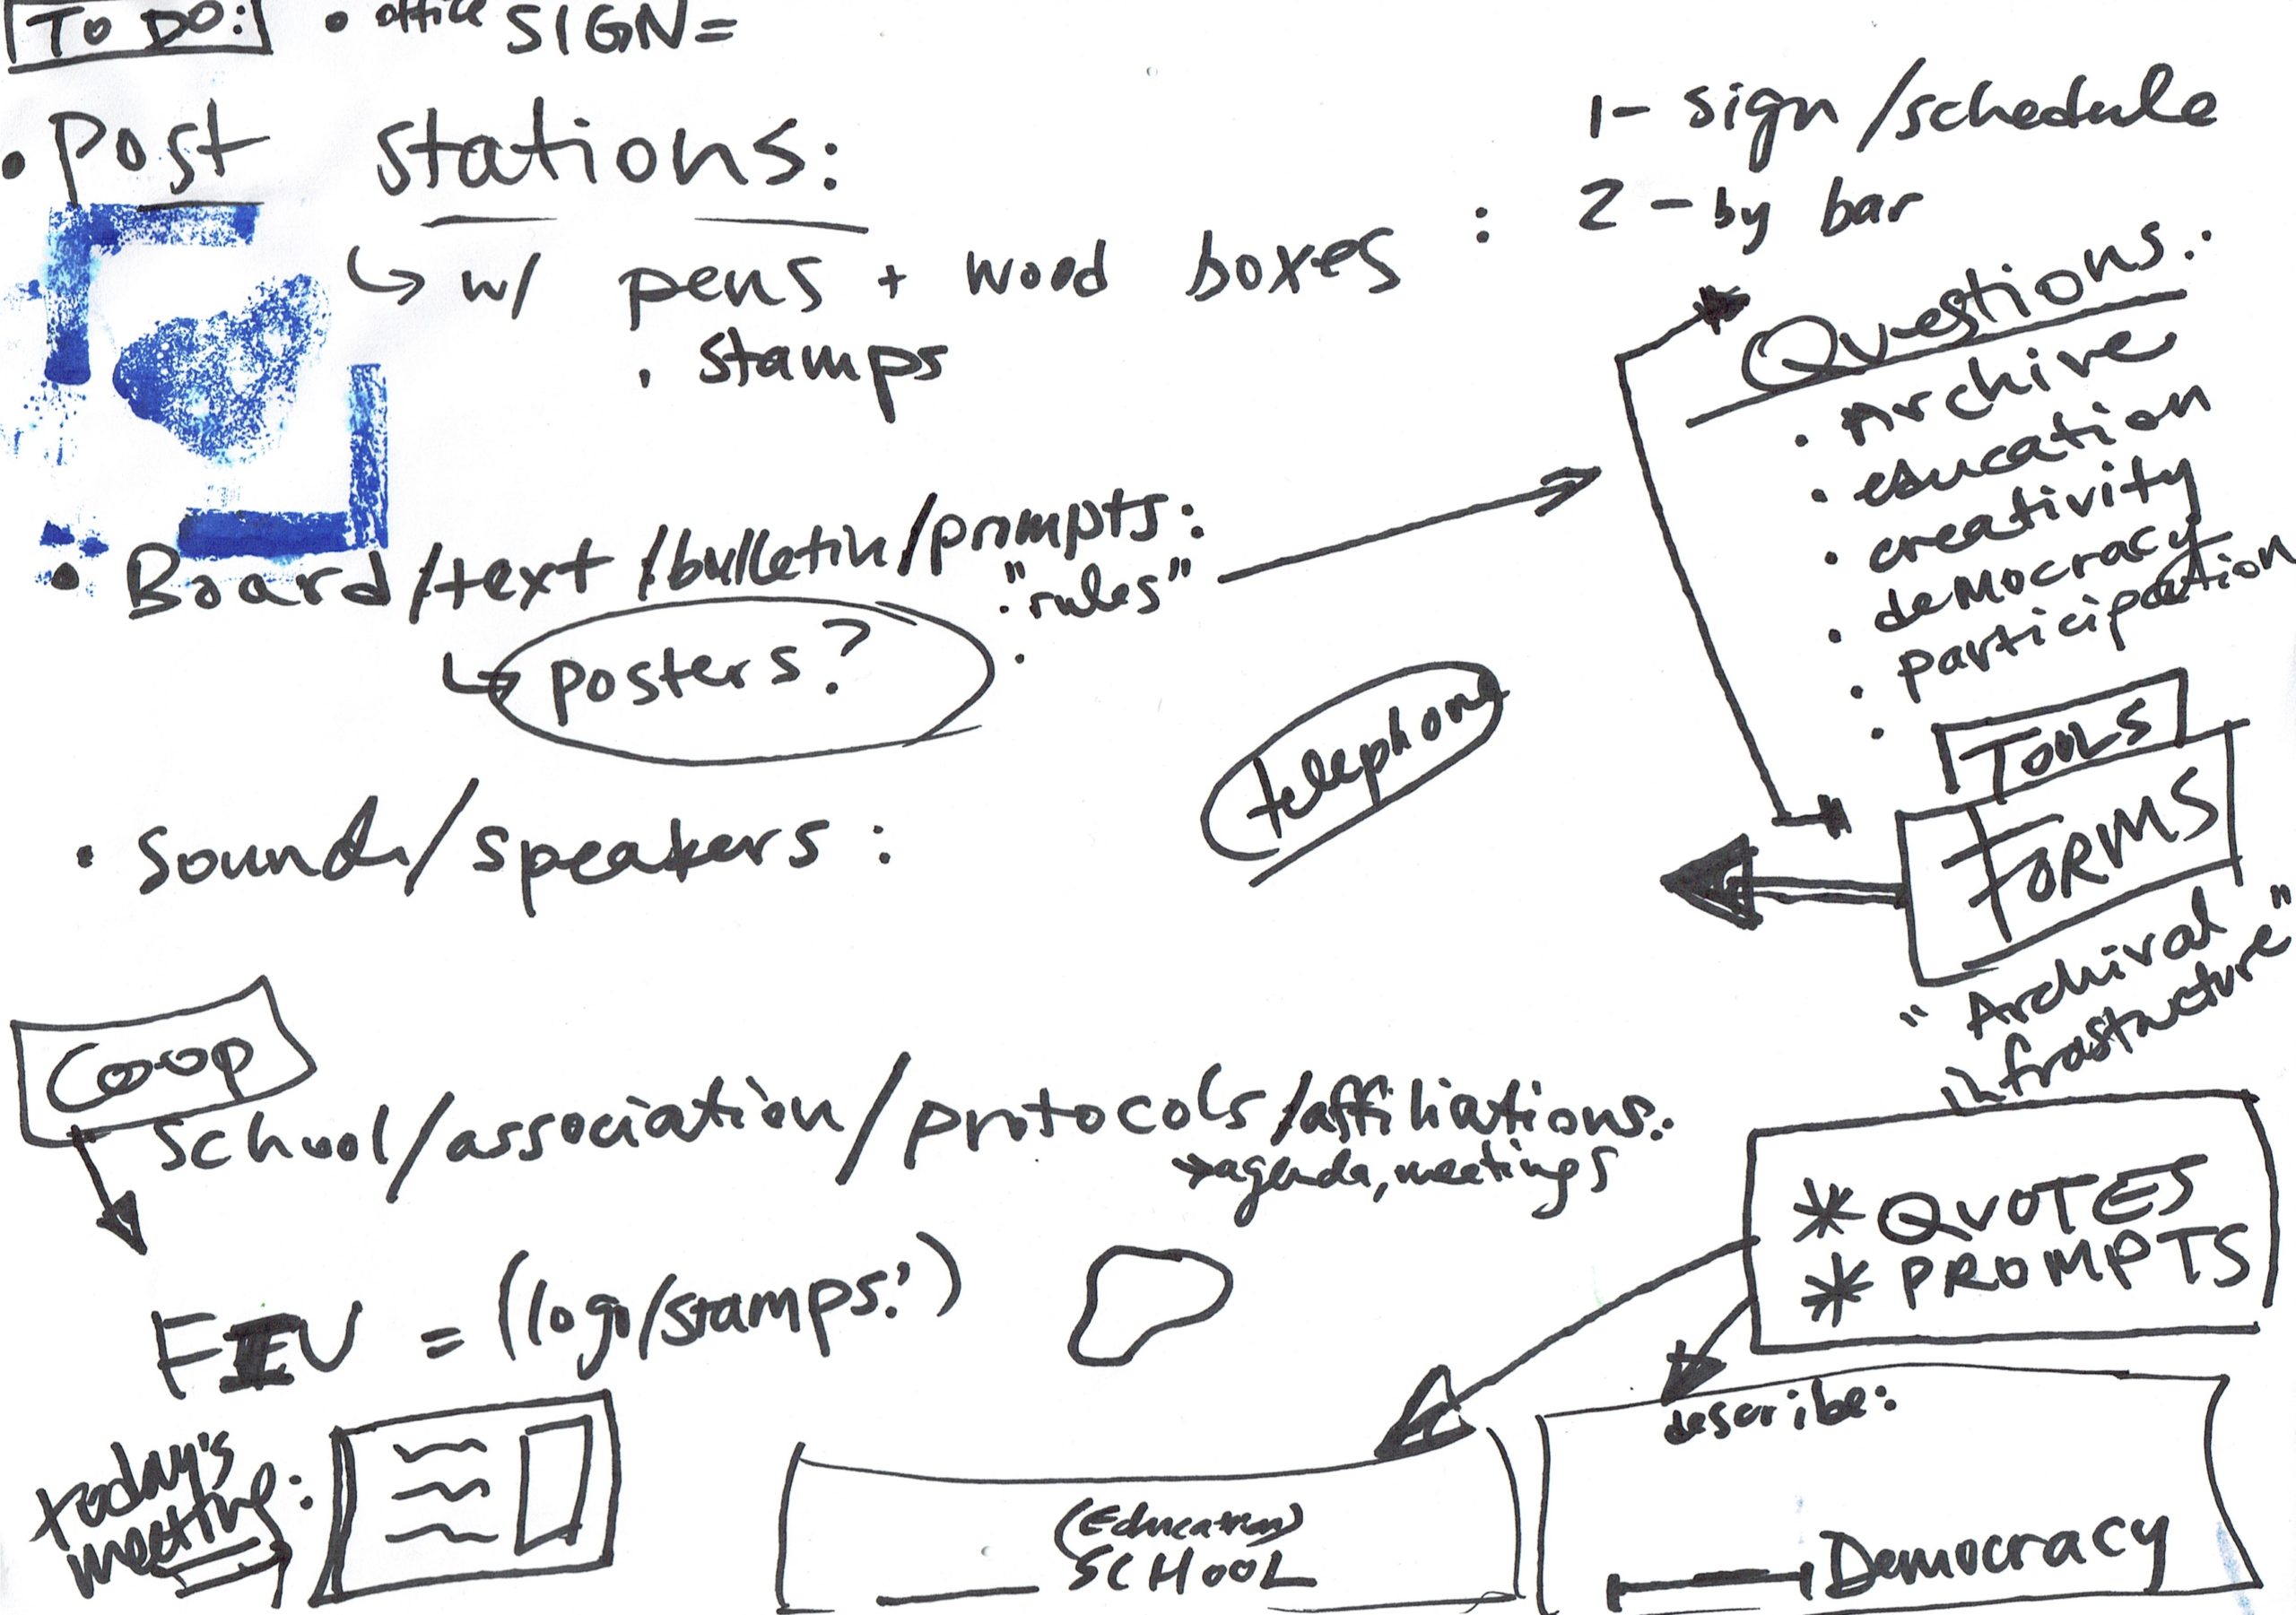 TO DO: • office SIGN=
• Post stations:
↳ w/ pens + wood boxes :
• stamps
1- sign/schedule
2 - by bar
• Board/text/bulletin/prompts:
• "rules"
↳ posters?
•
Questions:
• Archive
• education
• creativity
• deMocracy
• participation
•
TOOLS
FORMS
"Archival
infrastructure"
telephone
• Sounds/speakers :
Coop
School/association/protocols/affiliations:
→agenda, meetings
= (logo/stamps:)
* QUOTES
* PROMPTS
today's
meeting:
(Education)
SCHOOL
describe:
Democracy